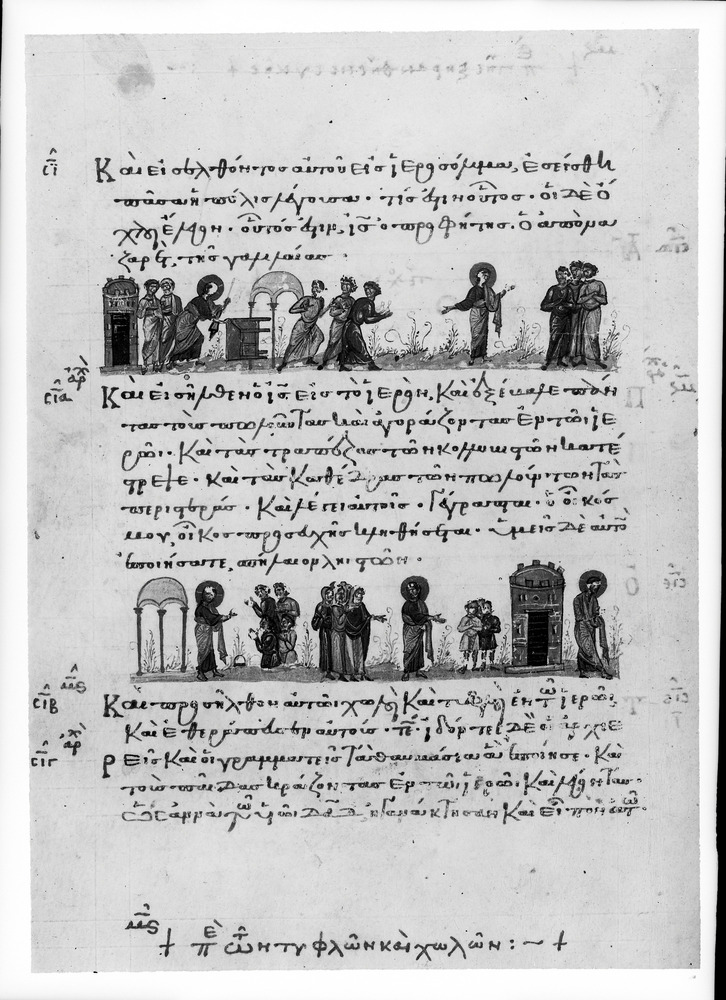 σι Καὶ εἰσελθόντος αὐτοῦ εἰς ἱεροσόλυμα, ἐσείσθη
πᾶσα ἡ πόλις λέγουσα · τίς ἐστιν οὗτος · οἱ δὲ ὄ
χλοι ἔλεγον · οὗτός ἐστιν, ι̅ς̅ ὁ προφήτης, ὁ ἀπὸ να
ζαρὲτ, τῆς γαλιλαίας ·
αρχ
σια Καὶ εἰσῆλθεν ὁ ι̅ς̅ εἰς τὸ ἱερὸν, Καὶ ἐξέβαλε πάν
τας τοὺς πωλοῦντας καὶ ἀγοράζοντας ἐν τῶι ἱε
ρῶι · Καὶ τὰς τραπέζας τῶν κολλυβιστῶν κατέ
στρεψε · Καὶ τὰς καθέδρας τῶν πωλούντων τὰς
περιστερὰς · Καὶ λέγει αὐτοῖς · Γέγραπται · ὁ οἶκός
μου, οἶκος προσευχῆς κληθήσεται · ὑμεῖς δὲ αὐτὸν
ἐποιήσατε, σπήλαιον ληστῶν ·
σιβ Καὶ προσῆλθον αὐτῶι χωλοὶ Καὶ τυφλοὶ ἐν τῶ ἱερῶ,
Καὶ ἐθεράπευσεν αὐτούς · ἰδόντες δὲ οἱ ἀρχιε
σιγ ρεῖς Καὶ οἱ γραμματεῖς τὰ θαυμάσια ἃ ἐποίησε · Καὶ
τοὺς παῖδας κράζοντας ἐν τῶι ἱερῶι · Καὶ λέγοντας ·
ὡσαννὰ τῶ υἱῶι δ̅α̅δ̅, ἠγανάκτησαν Καὶ εἶπον αὐτῶ ·
+ πε τῶν τυφλῶν καὶ χωλῶν : ~ +